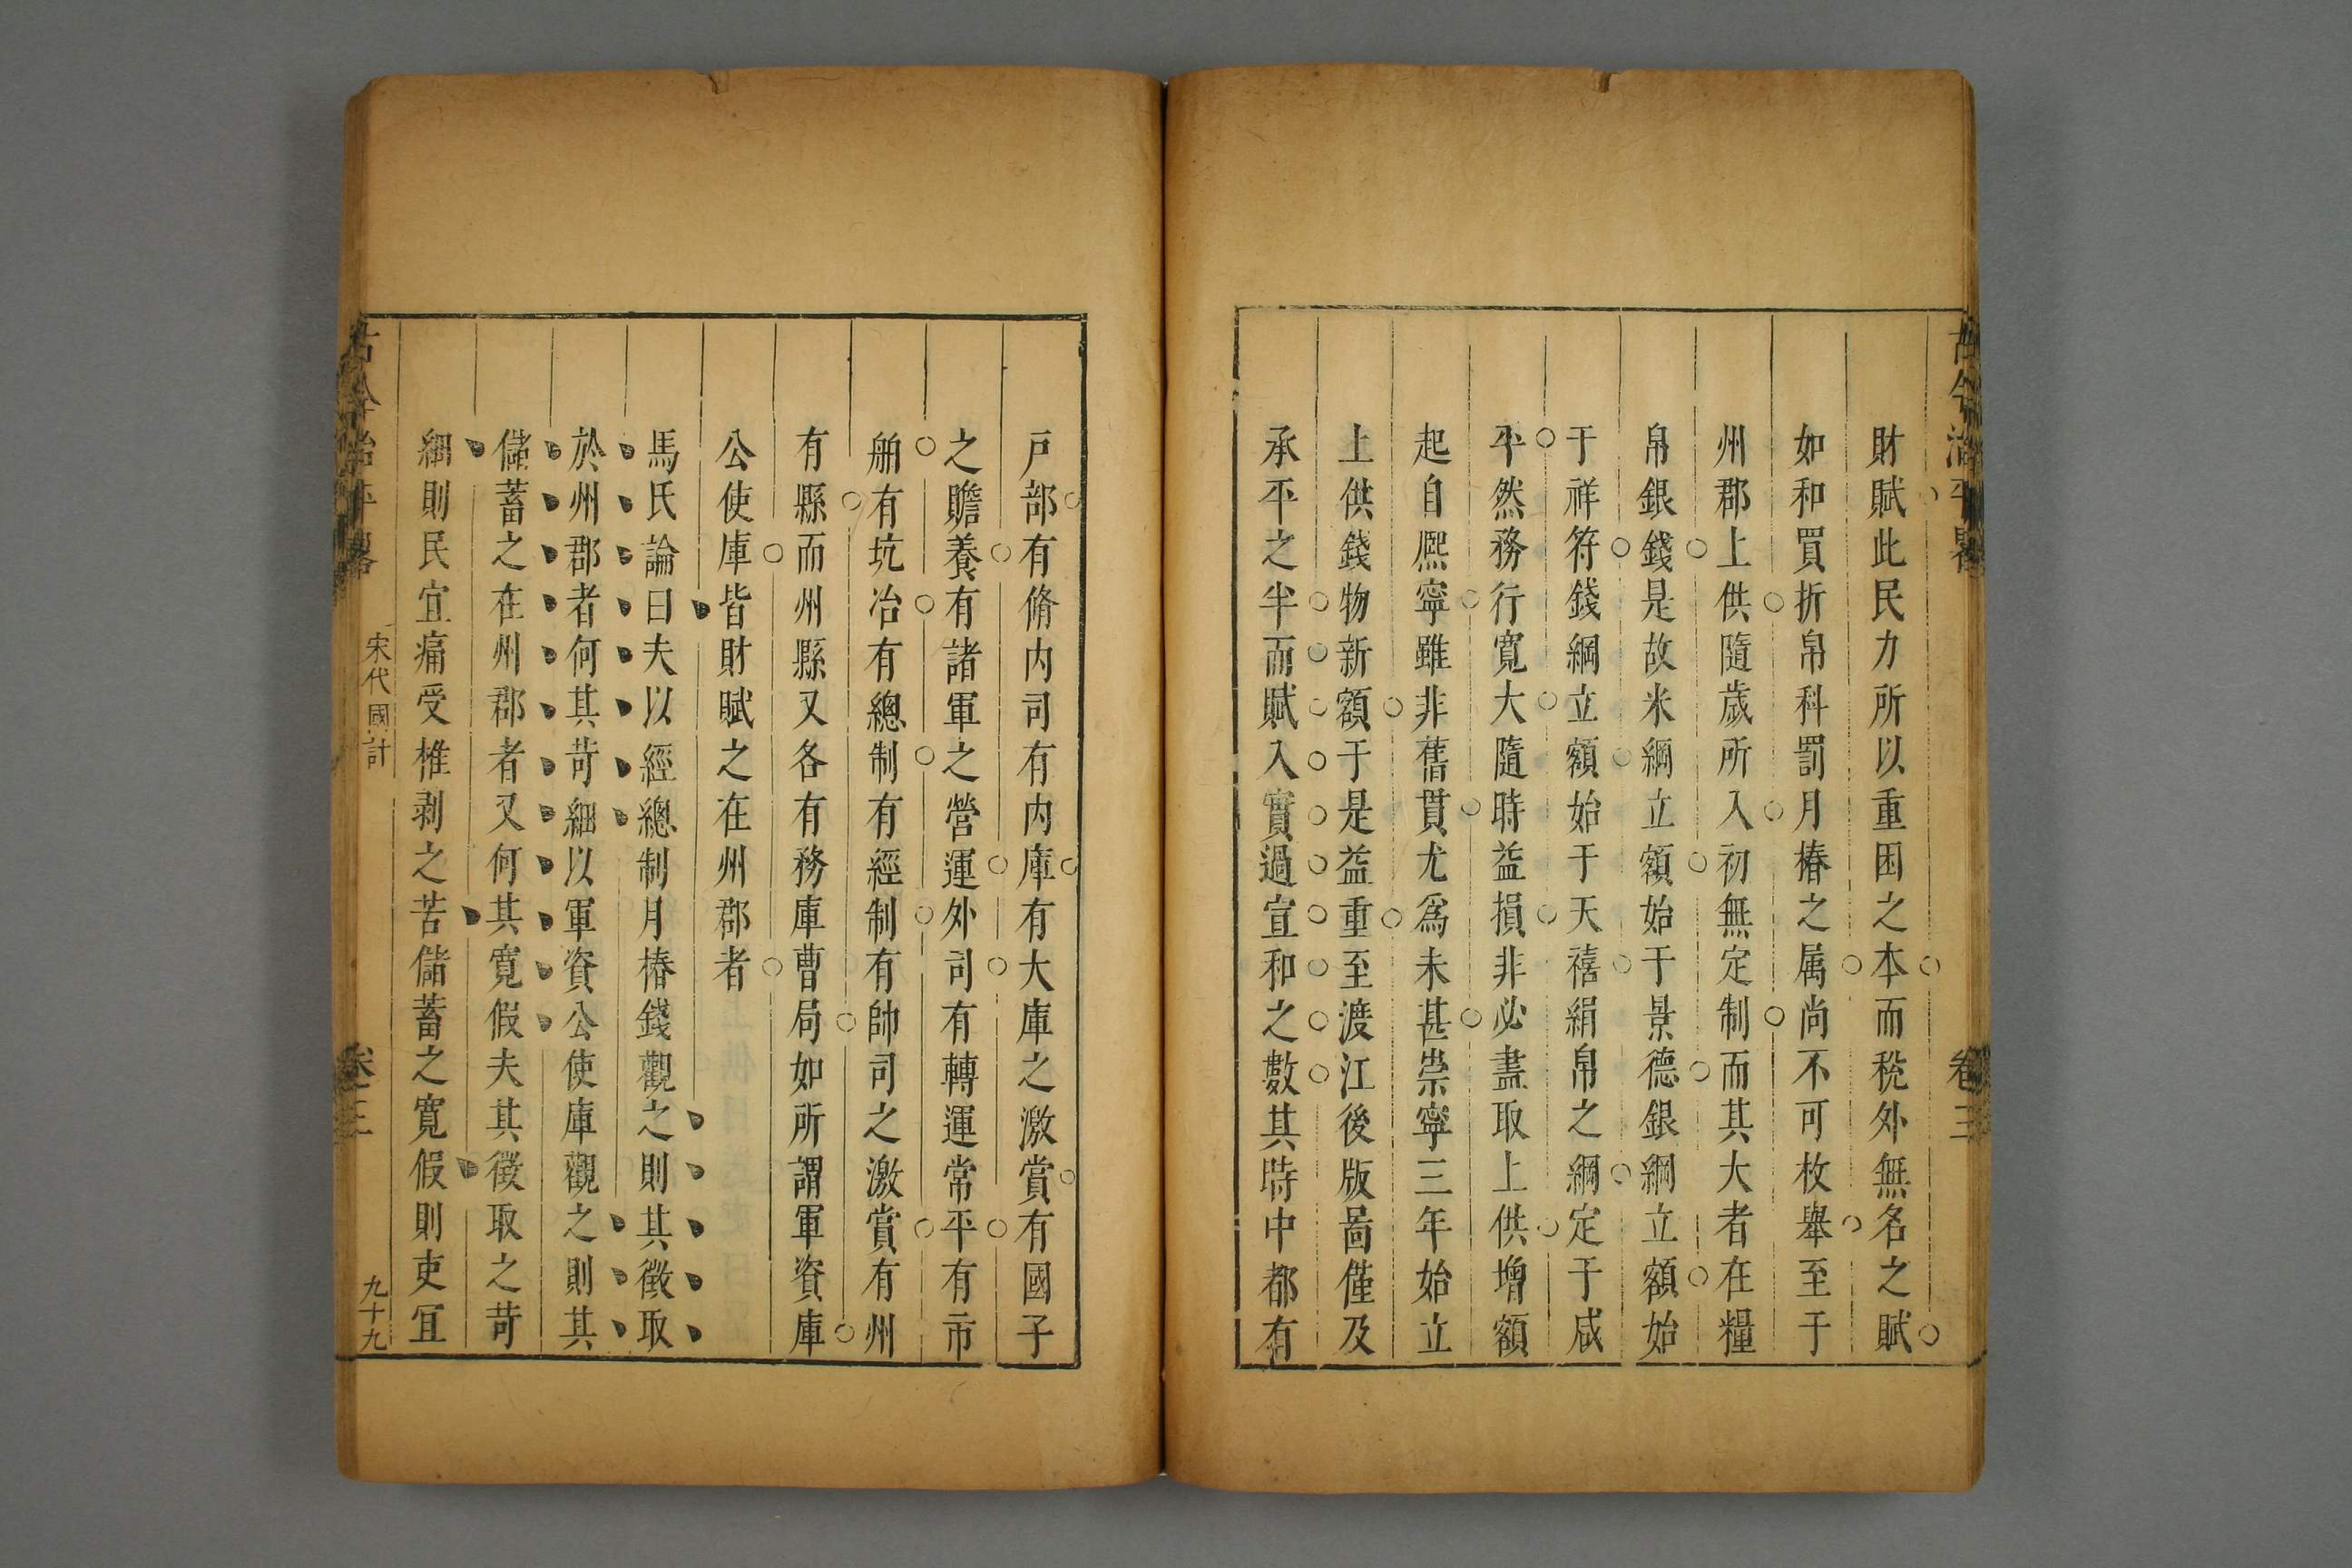 古今治平畧
卷三
財賦此民力所以重困之本而稅外無名之賦
如和買折帛科罰月樁之属尚不可枚舉至于
州郡上供隨歲所入初無定制而其大者在糧
帛銀錢是故米綱立額始于景德銀綱立額始
于祥符錢綱立額始于天禧絹帛之綱定于咸
平然務行寬大隨時益損非必盡取上供增額
起自熈寧雖非舊貫尤爲未甚崇寧三年始立
上供錢物新額于是益重至渡江後版啚僅及
承平之半而賦入實過宣和之數其時中都有
戸部有脩内司有内庫有大庫之激賞有國子
之贍養有諸軍之營運外司有轉運常平有市
舶有坑冶有總制有經制有帥司之激賞有州
有縣而州縣又各有務庫曹局如所謂軍資庫
公使庫皆財賦之在州郡者
馬氏論曰夫以經總制月樁錢觀之則其徵取
於州郡者何其苛細以軍資公使庫觀之則其
儲蓄之在州郡者又何其寬假夫其徵取之苛
細則民宜痛受椎剥之苦儲蓄之寬假則吏宜
古今治平畧
宋代國計
卷三
九十九